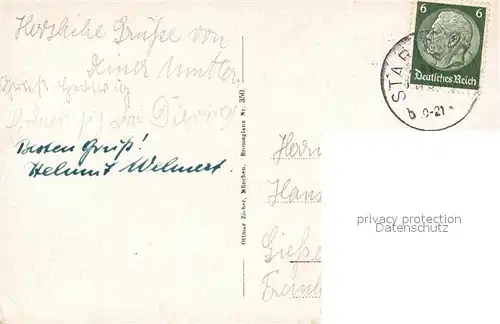 Herzliche Grüße von
Deiner Mutter
Gruß Hedwig
Besten Gruß!
Helmut Wehnert.
Ottmar Zieher, München. Bromoglanz Nr. 350.
6 6
Deutsches Reich
STA
b 9-21
Herrn
Hans
Gieße
Frank
privacy protection
Datenschutz